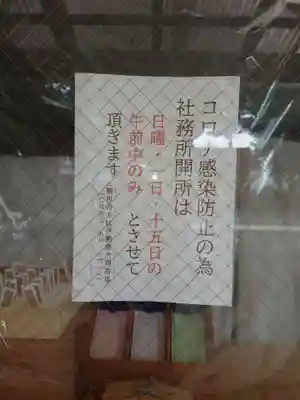 コロナ感染防止の為
社務所開所は
日曜・一日・十五日の
午前中のみ とさせて
頂ぎます